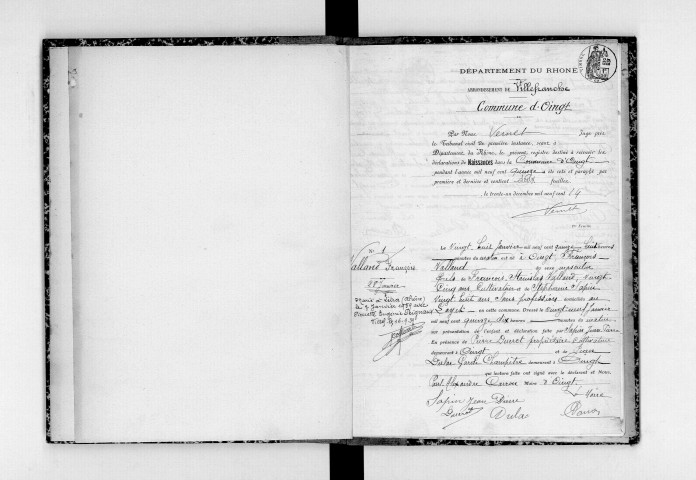 DÉPARTEMENT DU RHÔNE
ARRONDISSEMENT DE Villefranche
Commune d'Oingt
Par Nous Vernet Juge près
le Tribunal civil de première instance, séant à
Département du Rhône, le présent registre destiné à recevoir les
déclarations de Naissances dans la Commune d'Oingt
pendant l'année mil neuf cent quinze a été coté et paraphé par
première et dernière et contient deux feuilles
le trente-un décembre mil neuf cent 14
Vernet
N° 1
Valland François
28 Janvier
Le vingt huit janvier mil neuf cent quinze
du matin est né à Oingt François
Valland du sexe masculin
fils de François Stanislas Valland, vingt
cinq ans Cultivateur et de Stéphanie Sapin
vingt huit ans sans profession domiciliés au
Layet en cette commune. Dressé le vingt neuf janvier
mil neuf cent quinze dix heures du matin
sur présentation de l'enfant et déclaration faite par Sapin Jean Pierre
En présence de Pierre Durret propriétaire cultivateur
demeurant à Oingt et de Jean
Dulac Garde Champêtre demeurant à Oingt
qui lecture faite ont signé avec le déclarant et Nous,
Paul Alexandre Maire d'Oingt
Le Maire
Sapin Jean Pierre
Durret Dulac